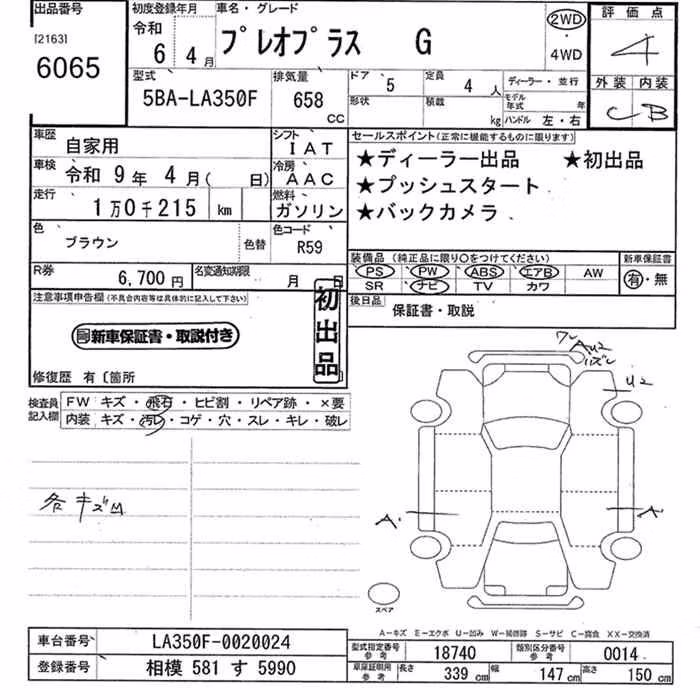 出品番号
[2163]
6065
初度登録年月
令和
6 年 4 月
車名・グレード
プレオプラス G
2WD
・
4WD
評価点
4
外装 内装
C B
型式
5BA-LA350F
排気量
658
CC
ドア
5
定員
4 人
ディーラー・並行
形状
積載
kg
モデル年式 年
ハンドル 左・右
車歴
自家用
シフト
IAT
車検
令和 9年 4月( 日)
冷房
AAC
走行
1万0千215 km
燃料
ガソリン
セールスポイント(正常に機能するものに限ります)
★ディーラー出品 ★初出品
★プッシュスタート
★バックカメラ
色
ブラウン
色替
色コード
R59
装備品(純正品に限り○をつけてください)
PS PW ABS エアB AW
SR ナビ TV カワ
新車保証書
有・無
R券
6,700円
名変通知期限
月 日
後日品
保証書・取説
注意事項申告欄(不具合内容等は具体的に記入して下さい)
新車保証書・取説付き
初出品
修復歴 有〔箇所
検査員記入欄
FW キズ・飛石・ヒビ割・リペア跡・×要
内装 キズ・汚レ・コゲ・穴・スレ・キレ・破レ
各キズM
ワレ
AU2
ズレ
U2
A
A
スペア
A-キズ E-エクボ U-凹み W-補修跡 S-サビ C-腐食 XX-交換済
車台番号
LA350F-0020024
登録番号
相模 581 す 5990
型式指定番号
参考
18740
類別区分番号
参考
0014
車庫証明用
参考
長さ
339 cm
幅
147 cm
高さ
150 cm